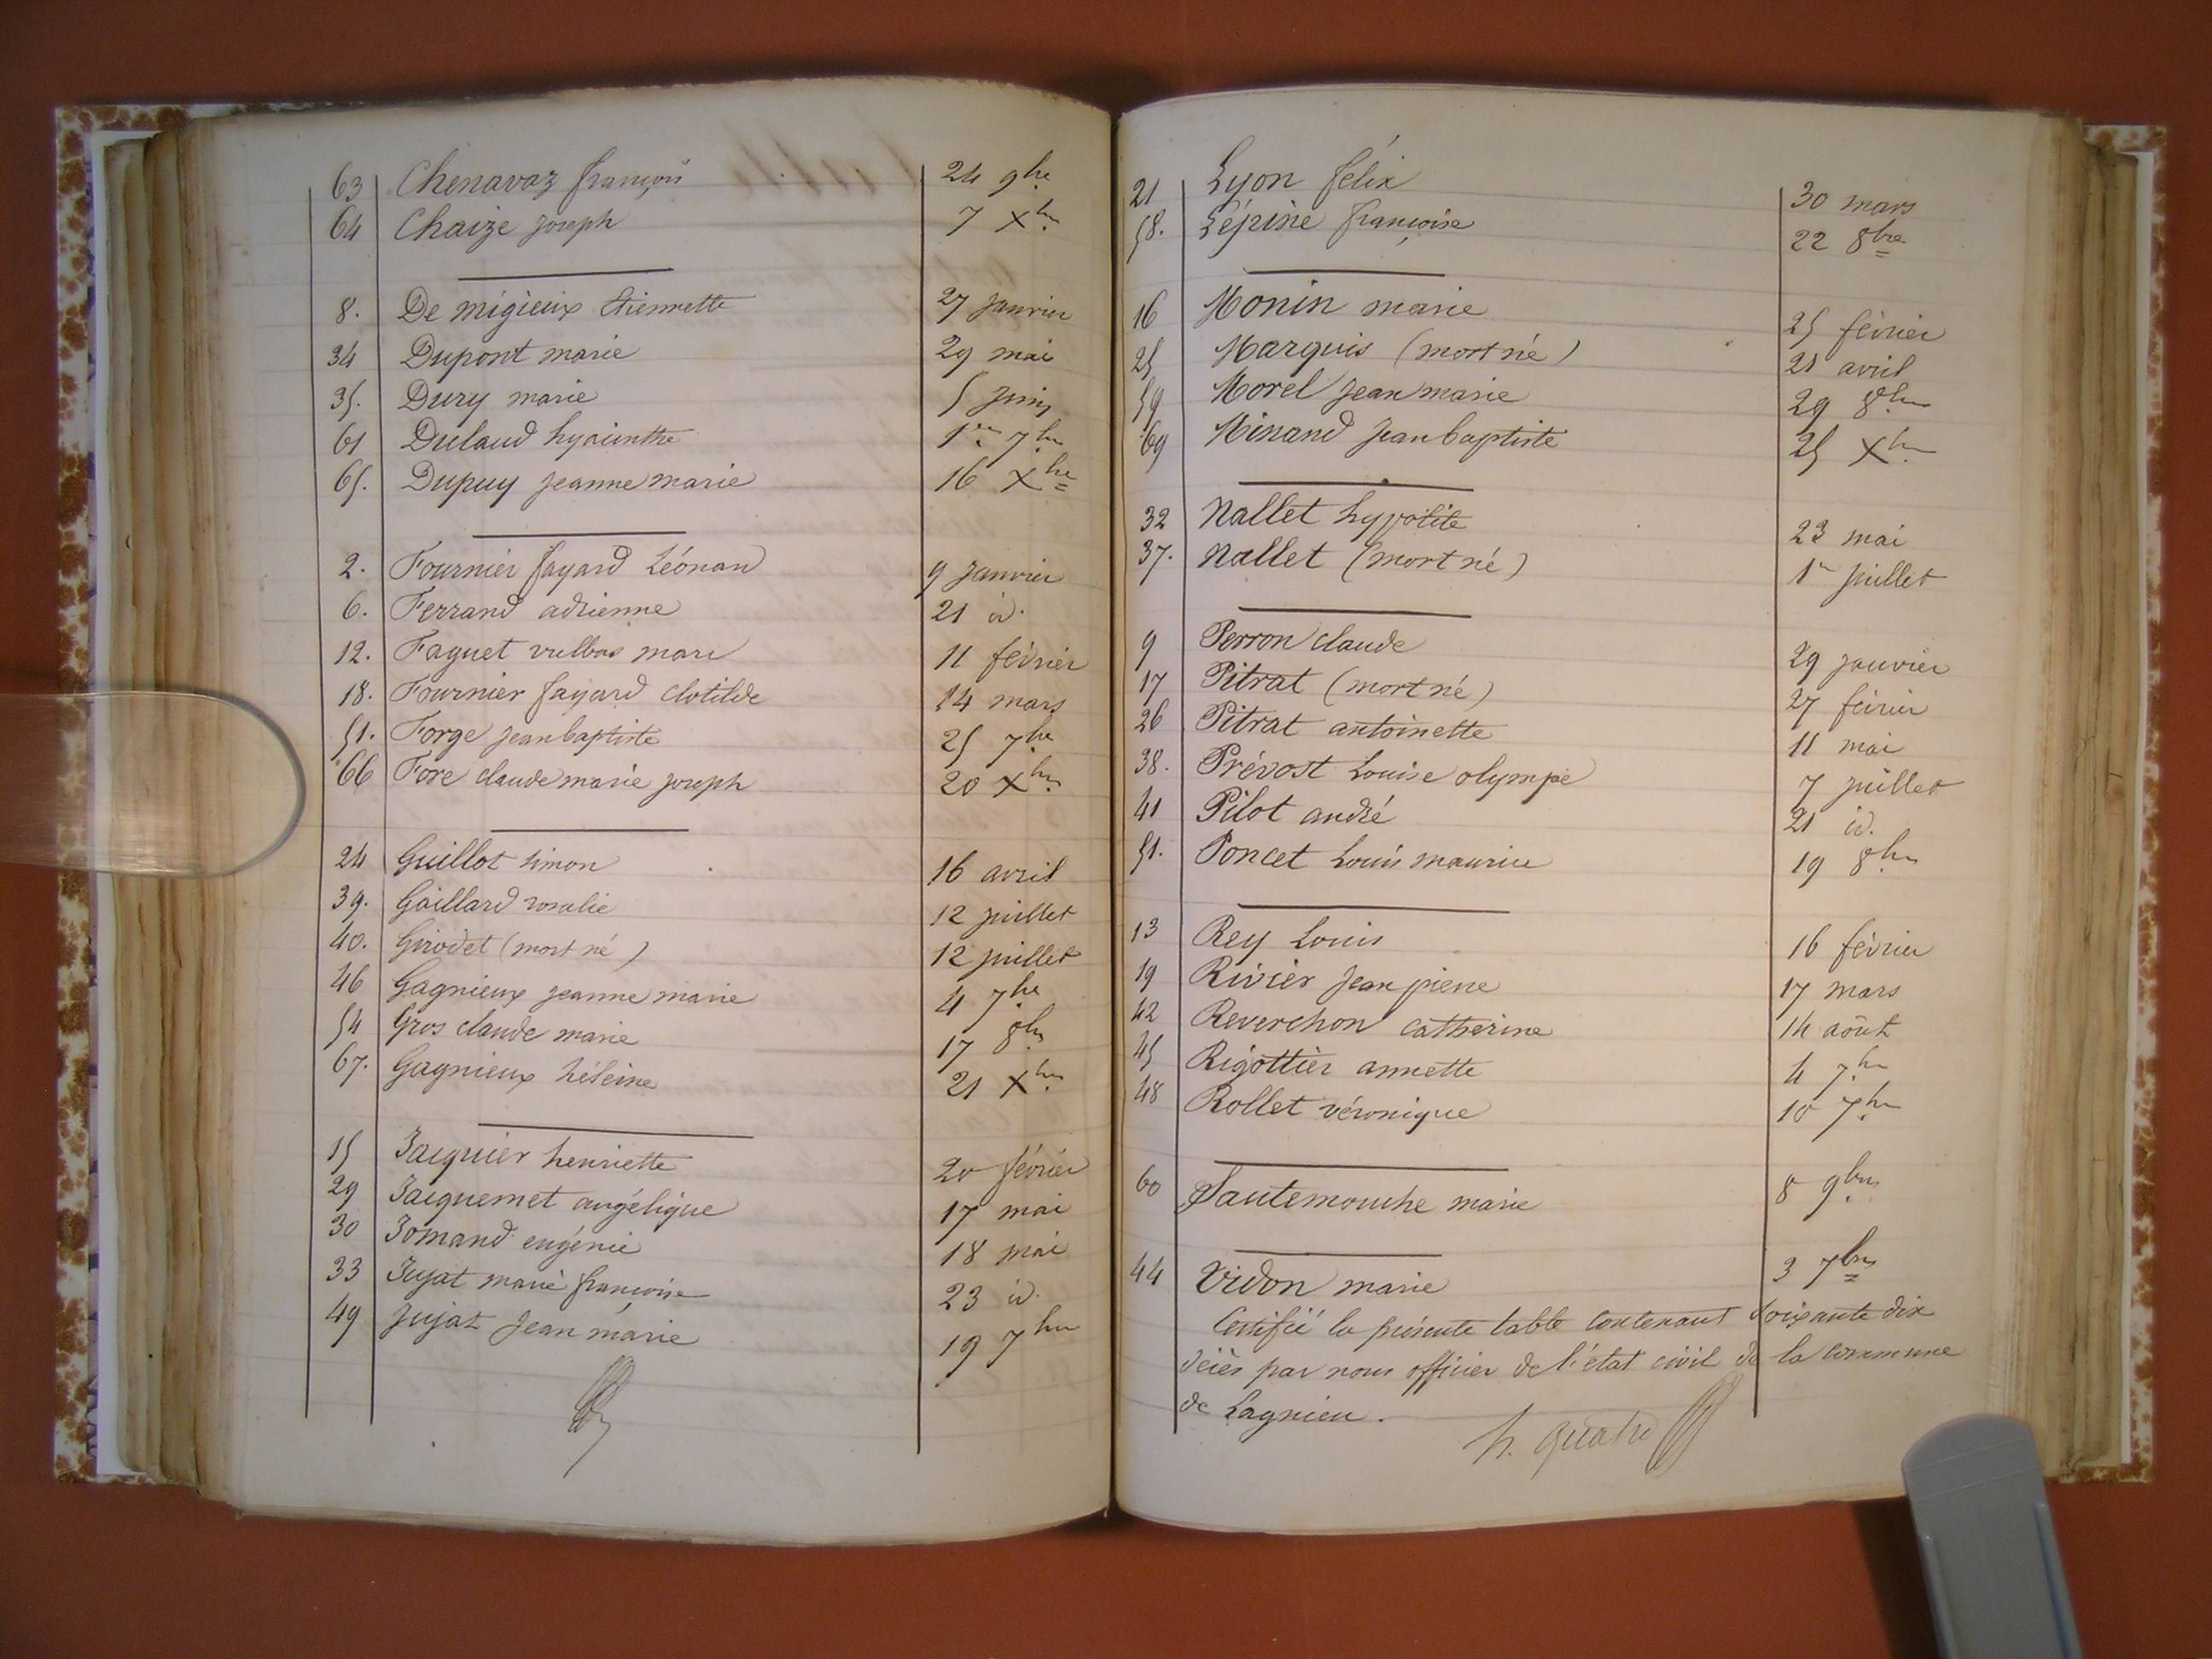 63 Chenavaz françois 24 9bre
64 Chaize joseph 7 Xbre
8. De migieux Etiennette 27 janvier
34 Dupont marie 29 mai
35. Dury marie 5 juin
61 Dulaud hyacinthe 1er 7bre
65. Dupuy jeanne marie 16 Xbre
2. Fournier fayard Léonan 9 janvier
6. Ferrand adrienne 21 id.
12. Faguet vulbas marc 11 février
18. Fournier fayard clotilde 14 mars
51. Forge jean baptiste 25 7bre
66 Fore claude marie joseph 20 Xbre
24 Guillot simon 16 avril
39. Gaillard rosalie 12 juillet
40. Girodet (mort né) 12 juillet
46 Gagnieux jeanne marie 4 7bre
54 Gros claude marie 17 8bre
67. Gagnieux héleine 21 Xbre
15 Jacquier henriette 20 février
29 Jacquemet angélique 17 mai
30 Jomand eugénie 18 mai
33 Jujat marie françoise 23 id.
49 Jujat Jean marie 19 7bre
21 Lyon félix 30 mars
58. Lépine françoise 22 8bre
16 Monin marie 25 février
25 Marquis (mort né) 21 avril
59 Morel jean marie 29 8bre
69 Minand jean baptiste 25 Xbre
32 Nallet hypolite 23 mai
37. Nallet (mort né) 1er juillet
9 Perron claude 29 janvier
17 Pitrat (mort né) 27 février
26 Pitrat antoinette 11 mai
38. Prévost Louise olympe 7 juillet
41 Pilot andré 21 id.
51. Poncet Louis maurice 19 8bre
13 Rey Louis 16 février
19 Rivier jean pierre 17 mars
42 Reverchon catherine 14 août
45 Rigottier annette 4 7bre
48 Rollet véronique 10 7bre
60 Sautemouche marie 8 9bre
44 Vidon marie 3 7bre
Certifié la présente table contenant soixante dix
décès par nous officier de l'état civil de la commune
de Lagnieu.